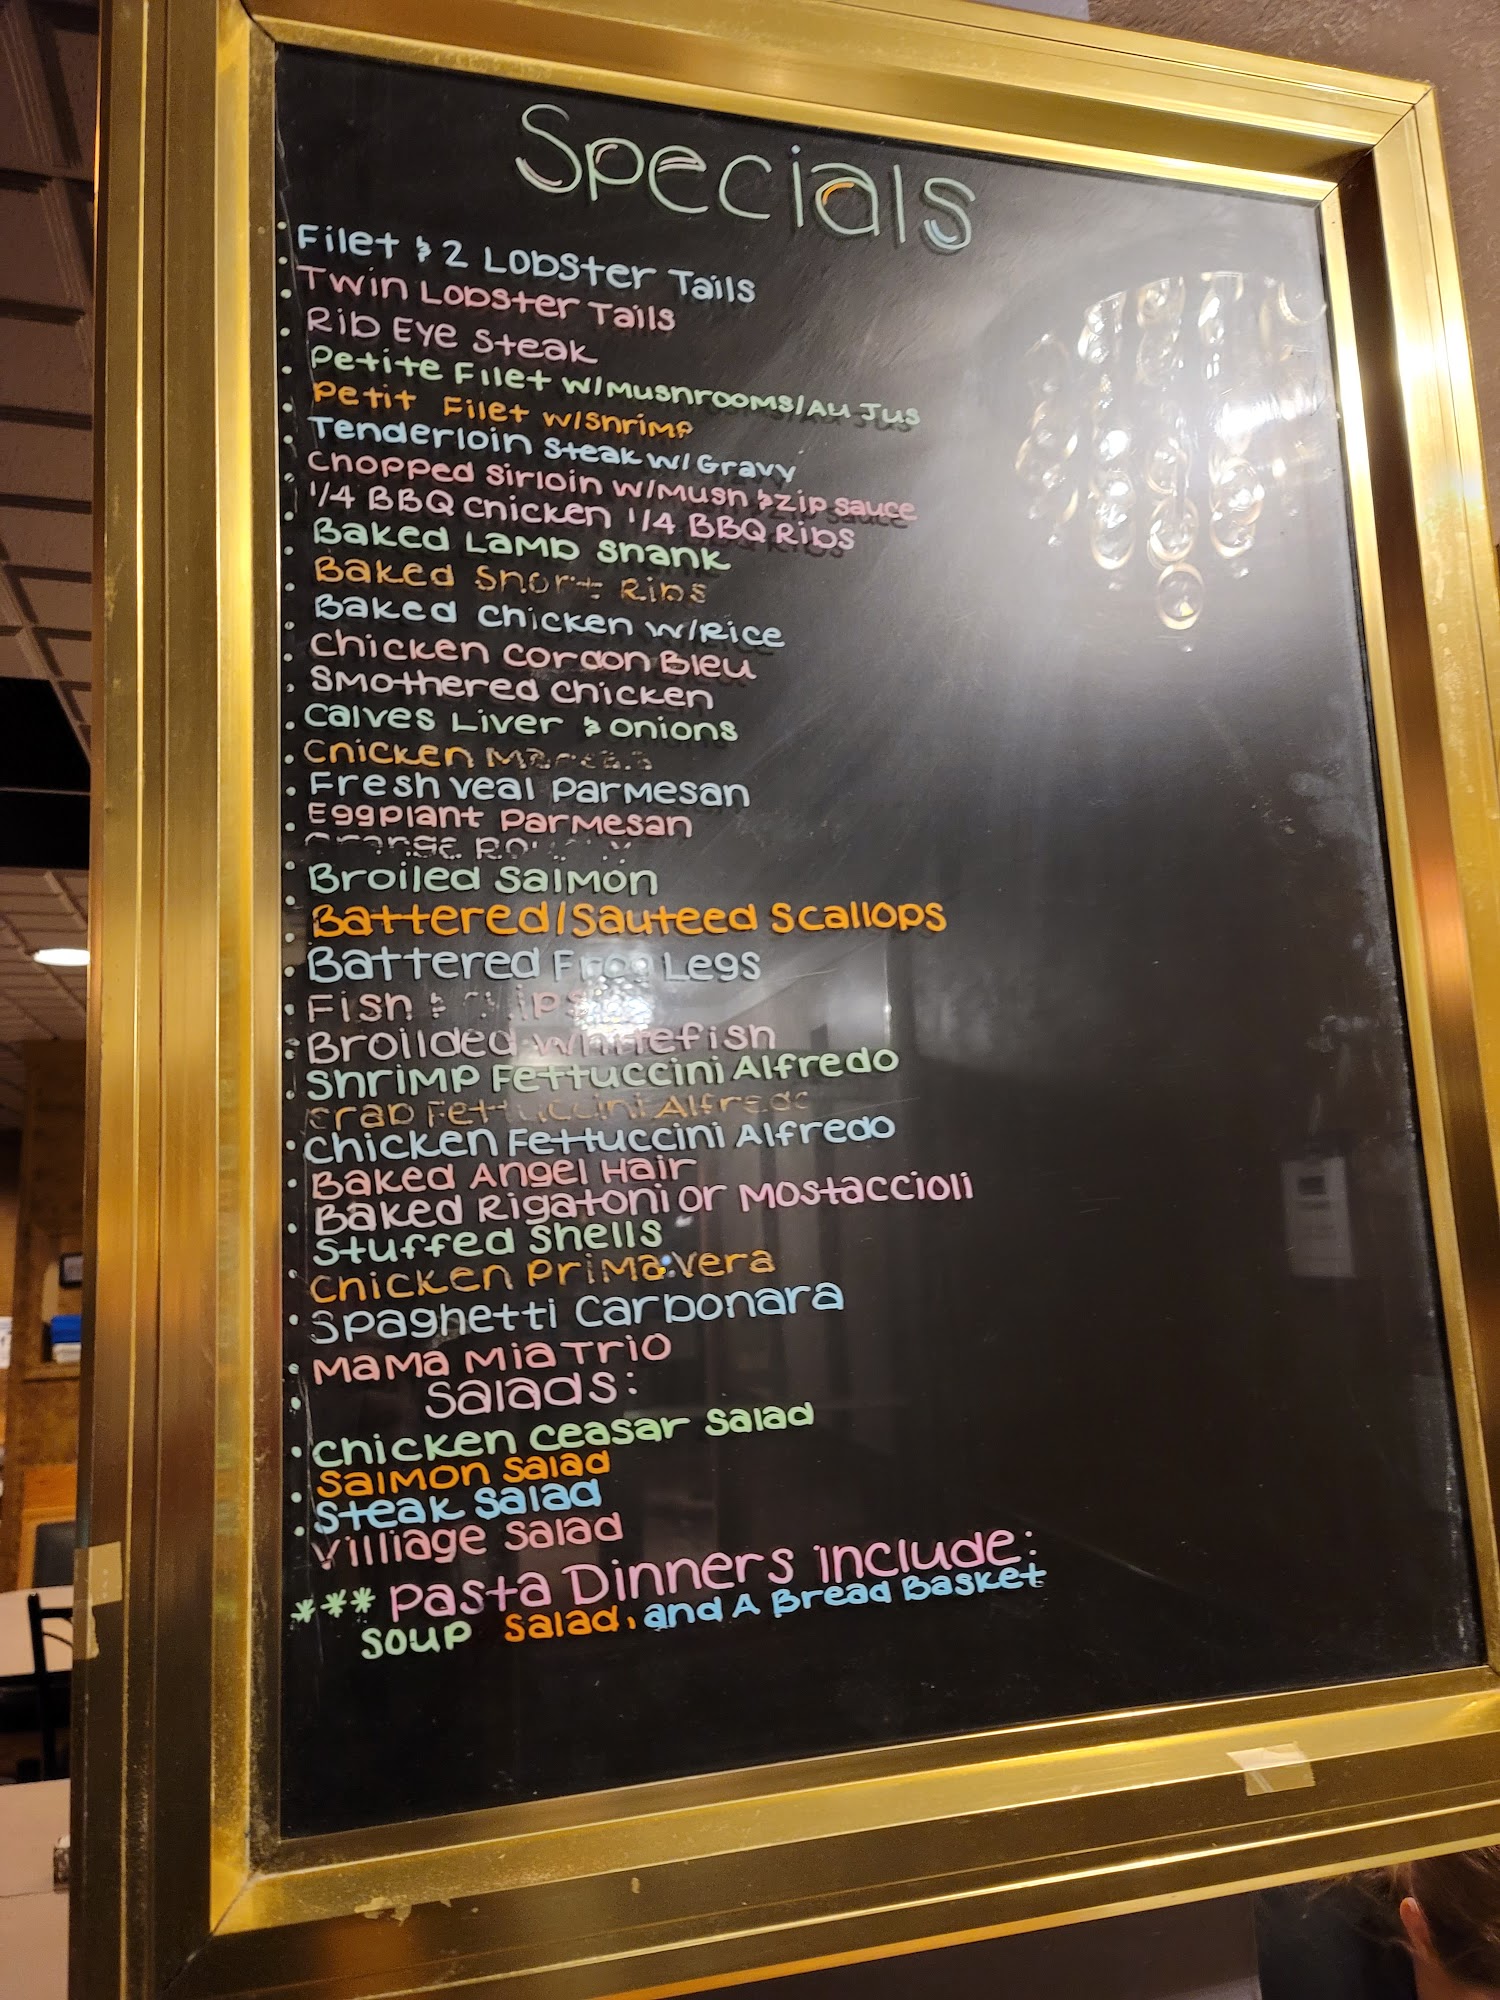 Specials
Filet & 2 Lobster Tails
Twin Lobster Tails
Rib Eye Steak
Petite Filet w/Mushrooms/Au Jus
Petit Filet w/Shrimp
Tenderloin Steak w/ Gravy
Chopped Sirloin w/Mush & Zip Sauce
1/4 BBQ Chicken 1/4 BBQ Ribs
Baked Lamb Shank
Baked Short Ribs
Baked Chicken w/Rice
Chicken Cordon Bleu
Smothered Chicken
Calves Liver & Onions
Chicken
Fresh Veal Parmesan
Eggplant Parmesan
Orange
Broiled Salmon
Battered/Sauteed Scallops
Battered Frog Legs
Fish & Chips
Broilded Whitefish
Shrimp Fettuccini Alfredo
Crab Fettuccini Alfredo
Chicken Fettuccini Alfredo
Baked Angel Hair
Baked Rigatoni or Mostaccioli
Stuffed Shells
Chicken Primavera
Spaghetti Carbonara
Mama Mia Trio
Salads:
Chicken Ceasar Salad
Salmon Salad
Steak Salad
Villiage Salad
*** Pasta Dinners include:
Soup Salad, and A Bread Basket